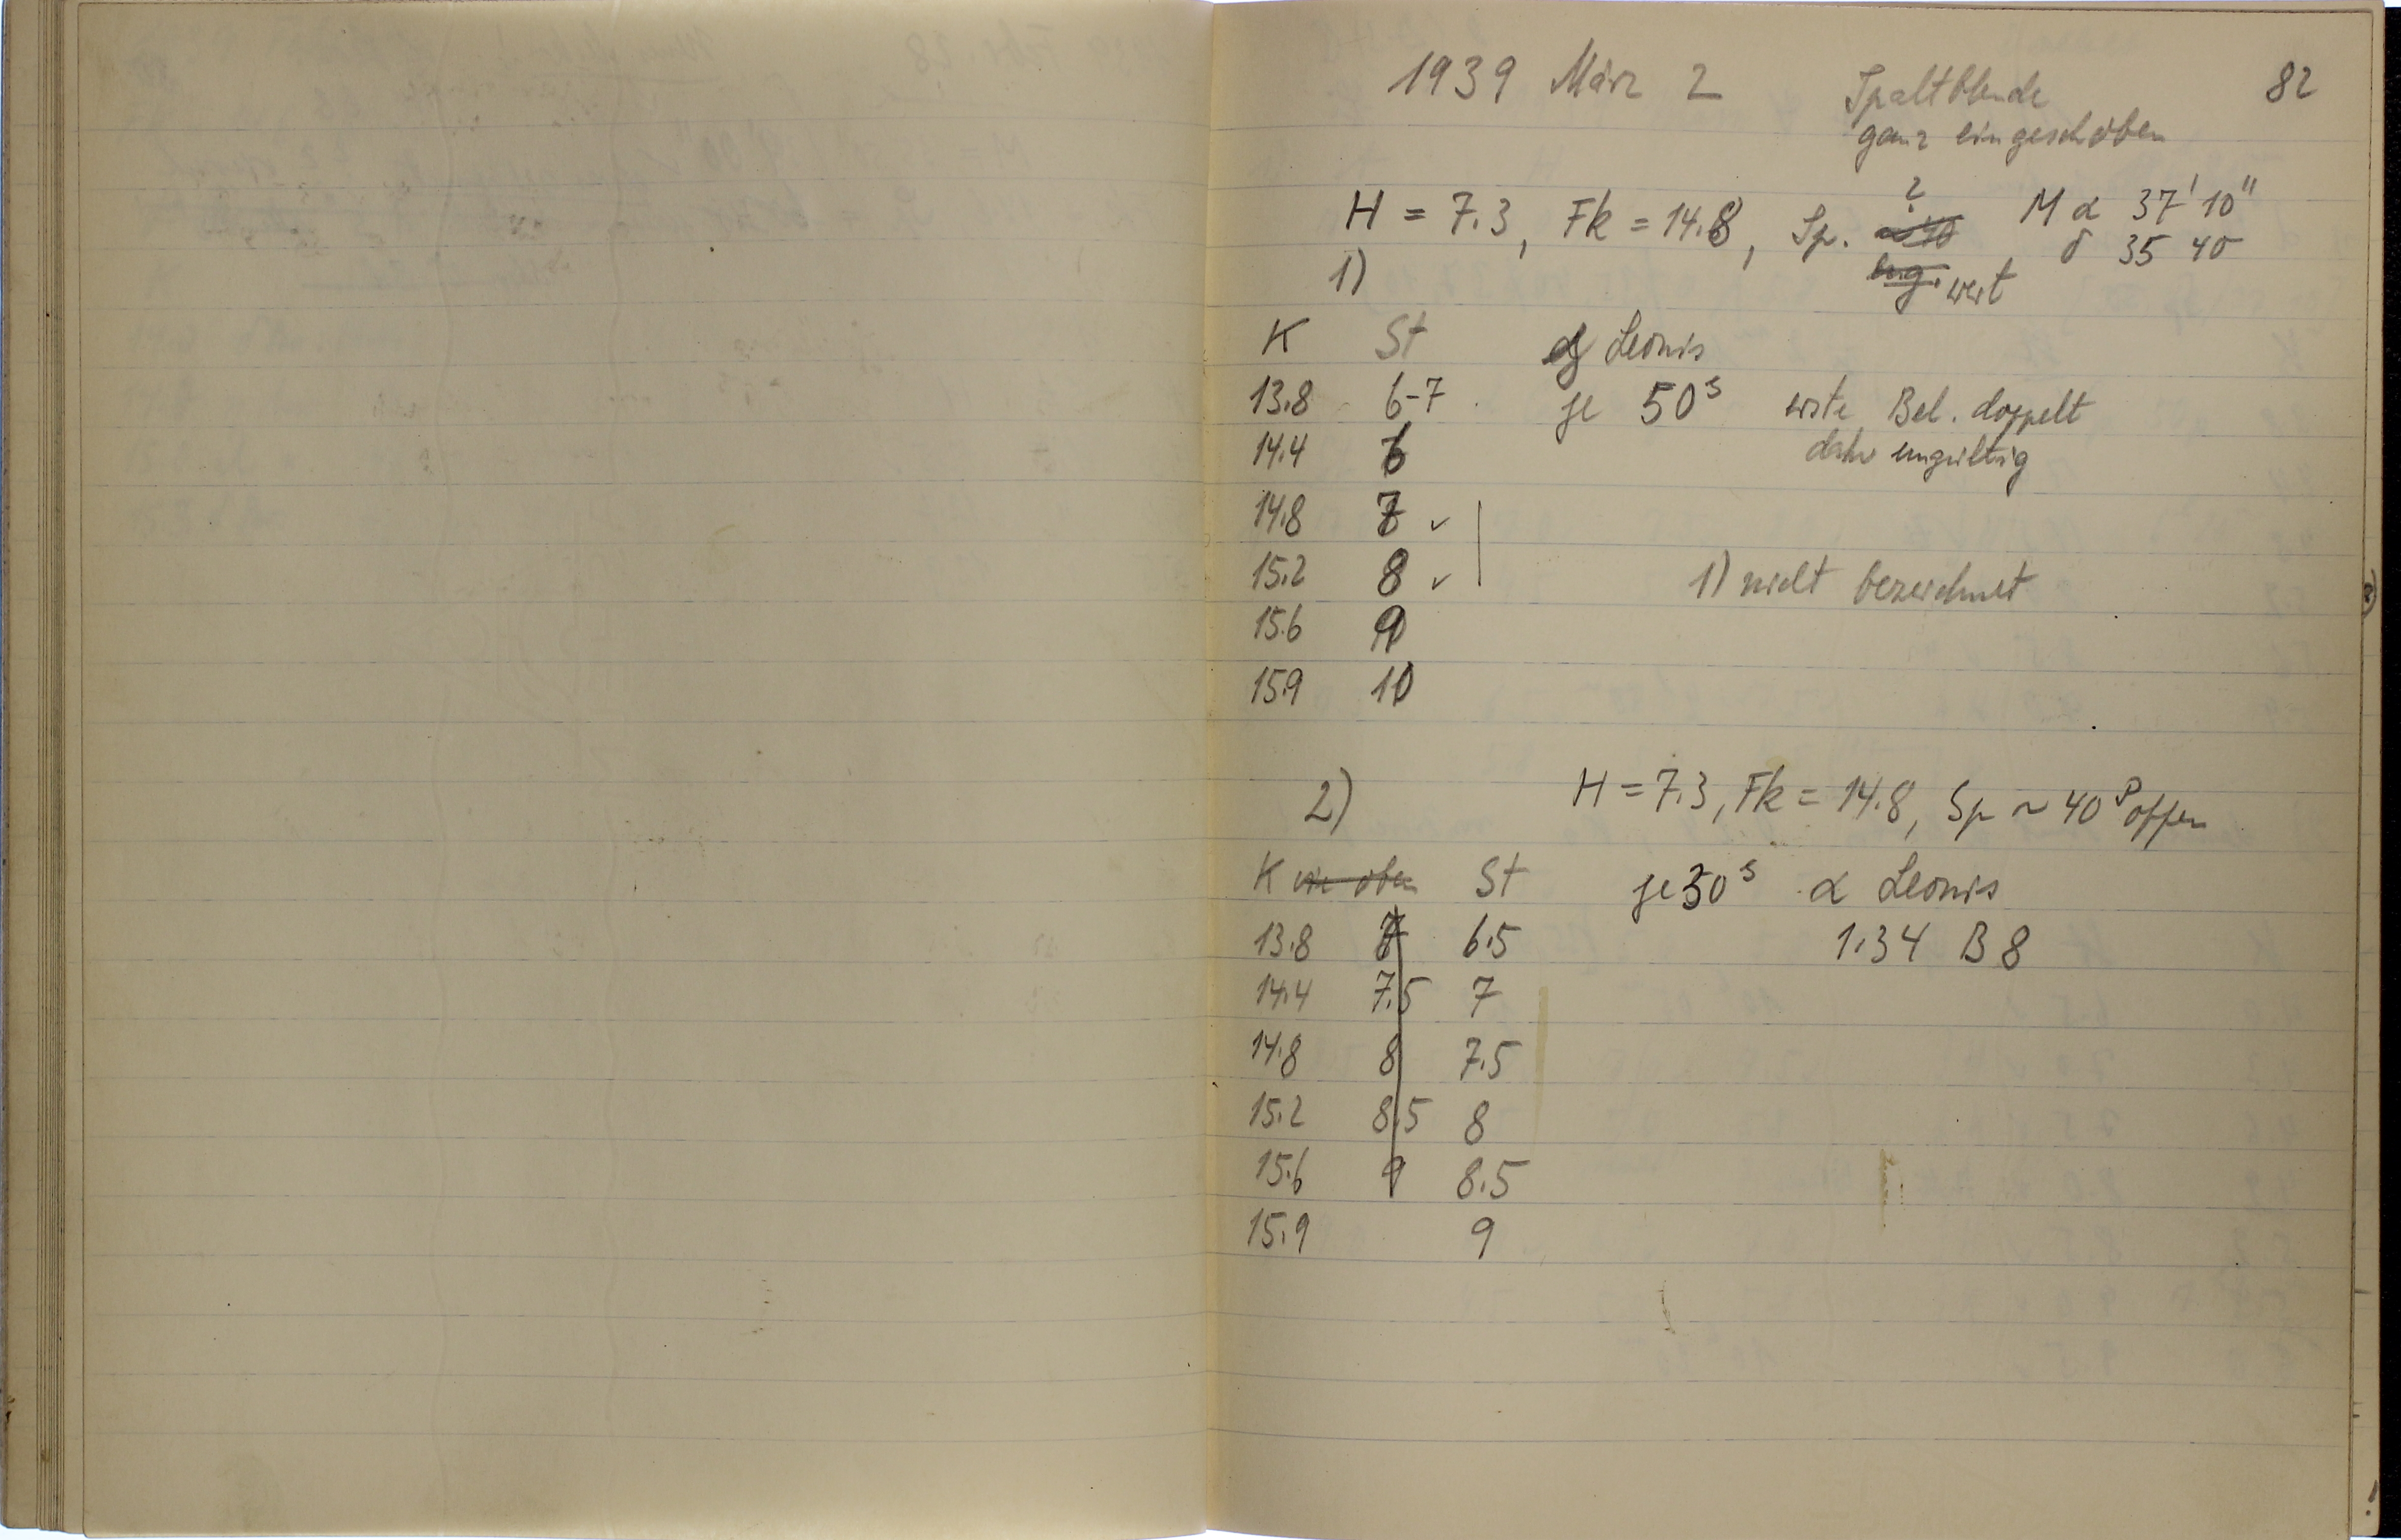 1939 März 2
82
Spaltblende
ganz eingeschoben
H = 7.3, Fk = 14.8, Sp. ?
weit
M α 37' 10"
δ 35 40
1)
K St Leonis
13.8 6-7 je 50s erste Bel. doppelt
14.4 6 daher ungültig
14.8 7 ✓
15.2 8 ✓ 1) nicht bezeichnet
15.6 9
15.9 10
2) H = 7.3, Fk = 14.8, Sp ~ 40 p offen
K wie oben St je 50s α Leonis
13.8 7 6.5 1.34 B 8
14.4 7.5 7
14.8 8 7.5
15.2 8.5 8
15.6 9 8.5
15.9 9